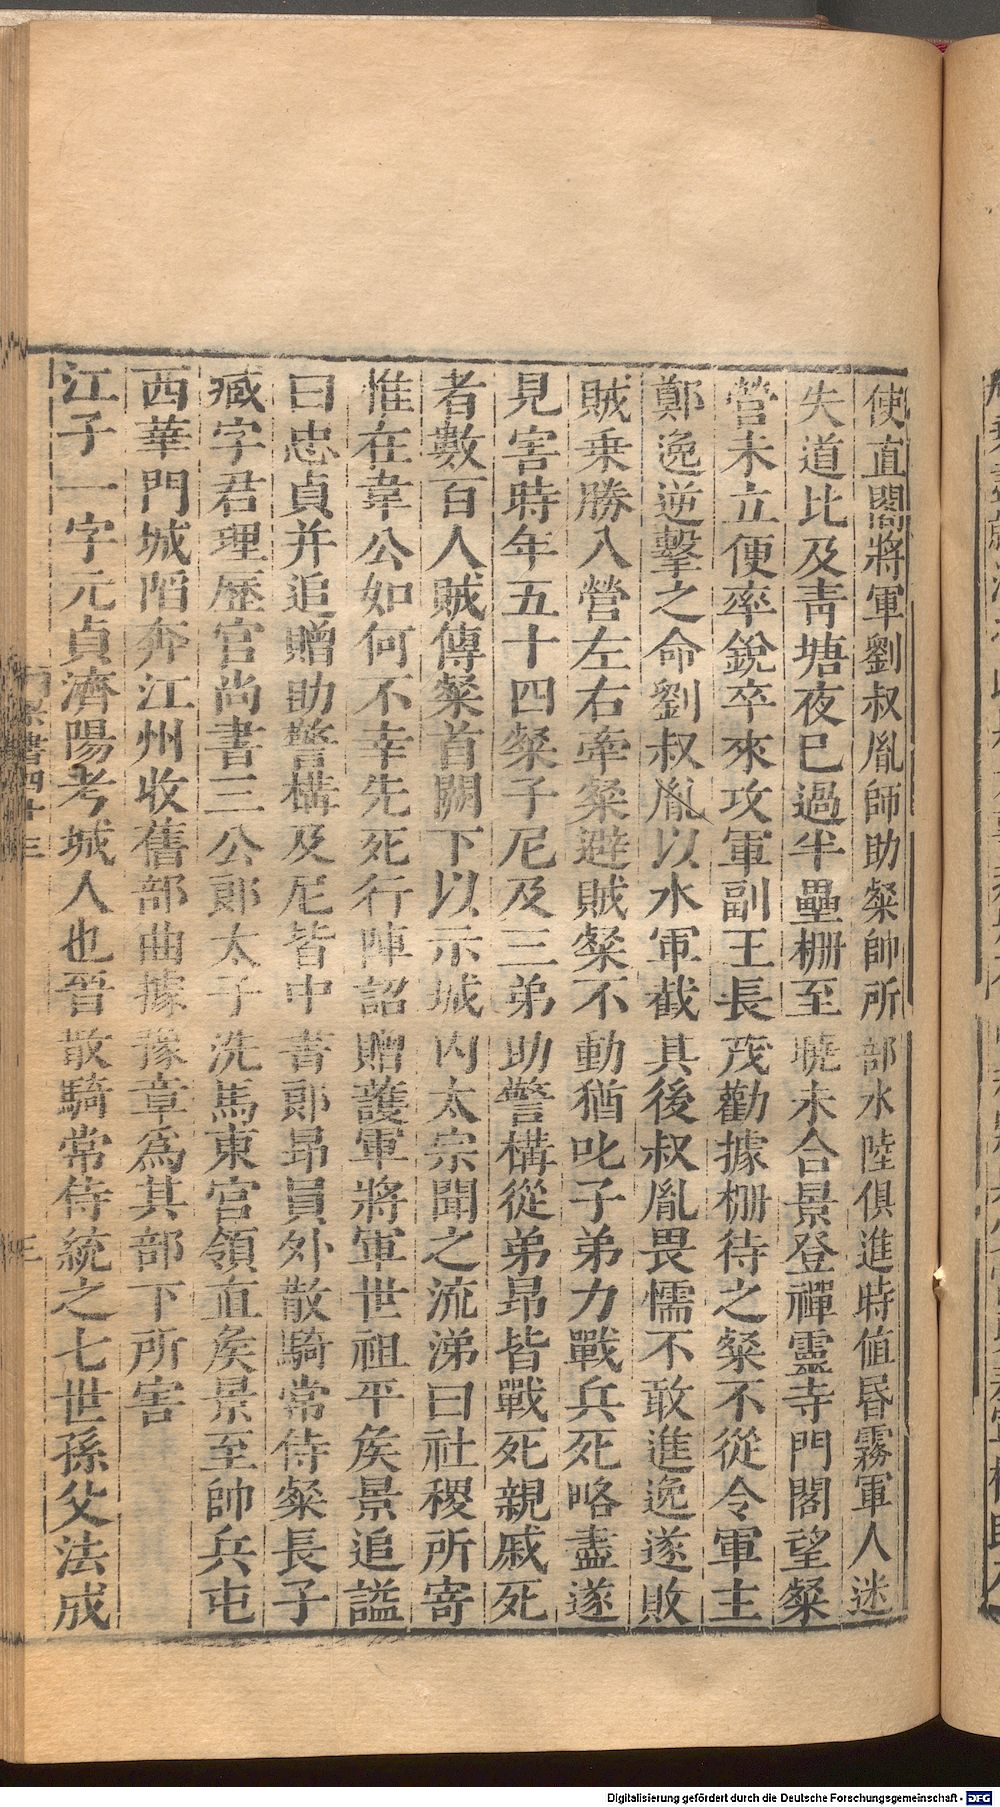 使直閤將軍劉叔胤師助粲帥所部水陸俱進時值昬霧軍人迷
失道比及靑塘夜已過半壘柵至曉未合景登禪靈寺門閣望粲
營未立便率銳卒來攻軍副王長茂勸據柵待之粲不從令軍主
鄭逸逆擊之命劉叔胤以水軍截其後叔胤畏懦不敢進逸遂敗
賊乗勝入營左右牽粲避賊粲不動猶叱子弟力戰兵死略盡遂
見害時年五十四粲子尼及三弟助警構從弟昂皆戰死親戚死
者數百人賊傳粲首闕下以示城内太宗聞之流涕曰社稷所寄
惟在韋公如何不幸先死行陣詔贈護軍將軍世祖平矦景追謚
曰忠貞并追贈助警構及尼皆中書郎昂員外散騎常侍粲長子
臧字君理歷官尚書三公郎太子洗馬東宮領直矦景至帥兵屯
西華門城陷奔江州收舊部曲據豫章爲其部下所害
江子一字元貞濟陽考城人也晉散騎常侍統之七世孫父法成
書四十三
三
Digitalisierung gefördert durch die Deutsche Forschungsgemeinschaft - DFG